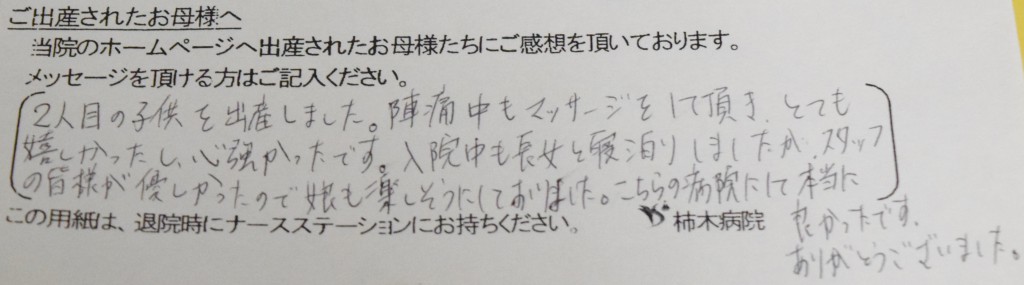 ご出産されたお母様へ
当院のホームページへ出産されたお母様たちにご感想を頂いております。
メッセージを頂ける方はご記入ください。
2人目の子供を出産しました。陣痛中もマッサージをして頂き、とても
嬉しかったし、心強かったです。入院中も長女と寝泊りしましたが、スタッフ
の皆様が優しかったので娘も楽しそうにしておりました。こちらの病院にして本当に
良かったです。
ありがとうございました。
この用紙は、退院時にナースステーションにお持ちください。 柿木病院